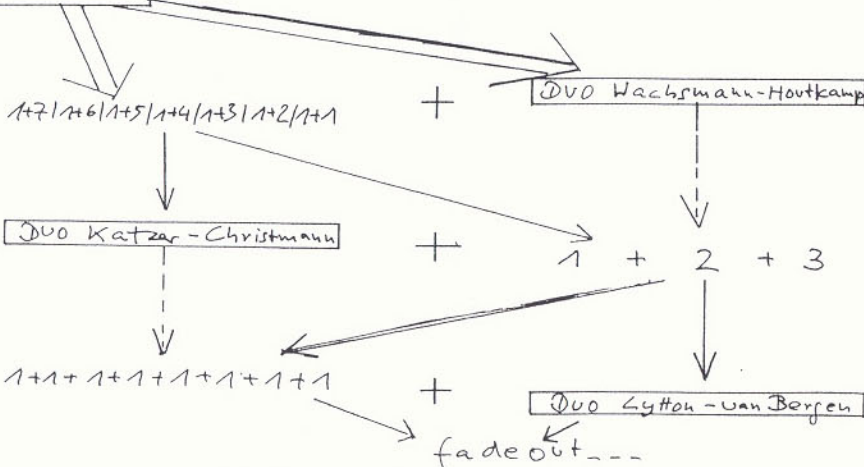 1+7/1+6/1+5/1+4/1+3/1+2/1+1 + DUO Wachsmann-Houtkamp
DUO Katzer-Christmann + 1 + 2 + 3
1+1+1+1+1+1+1+1 + Duo Lytton-van Bergen
fade out---